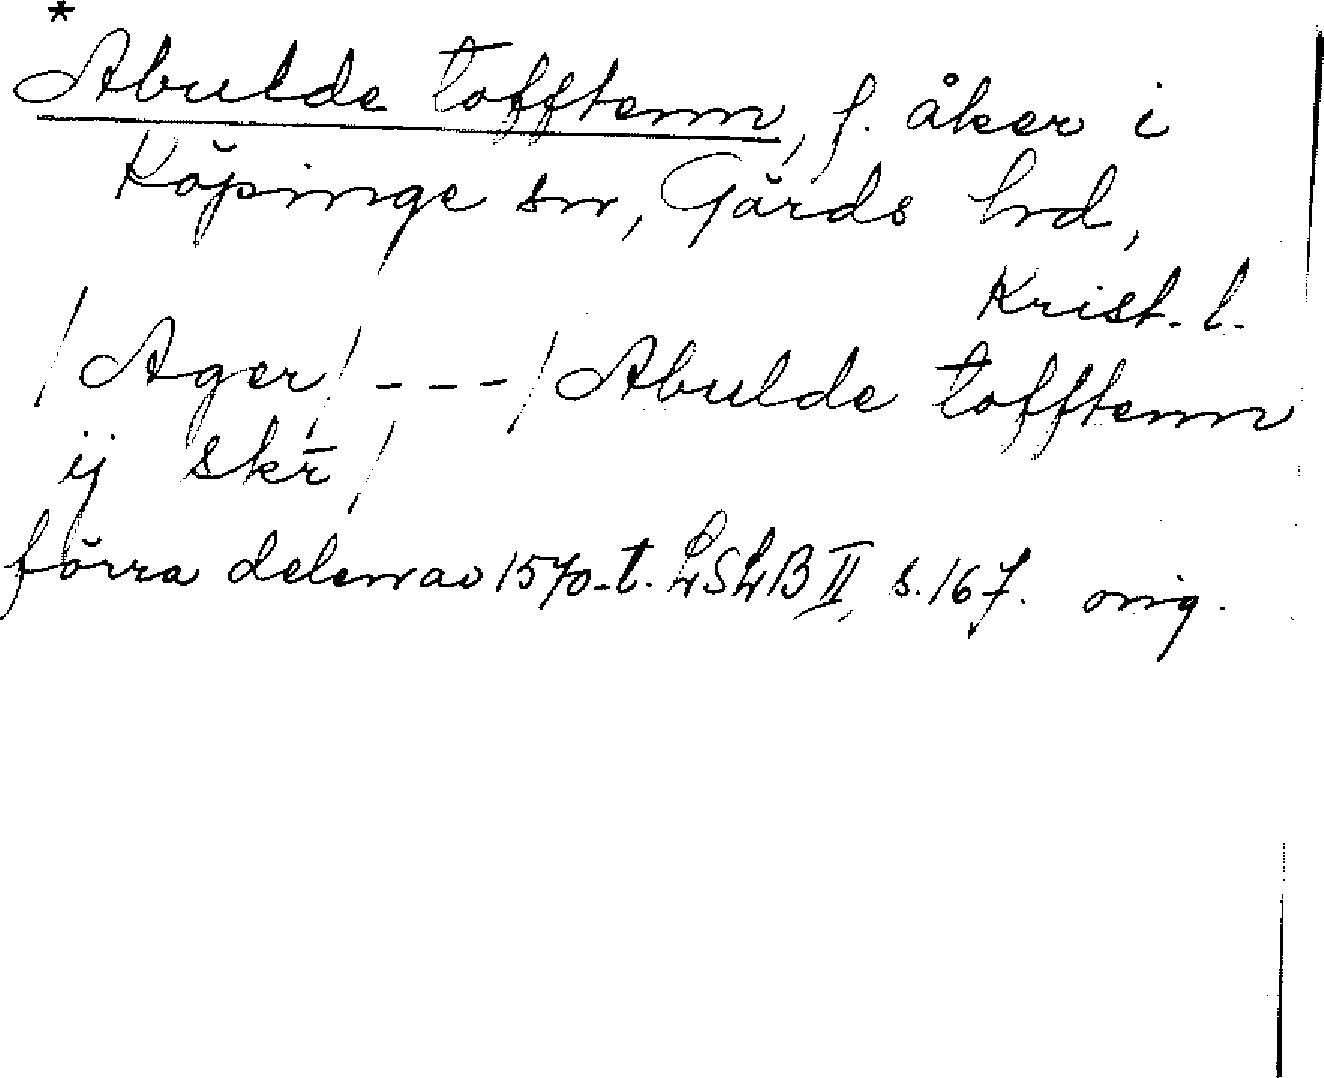 *
Abulde tofftenn, f. åker i
Köpinge sn, Gärds hd,
Krist. l.
/Ager/ - - - /Abulde tofftenn
ij skr̄/
förra delen av 1570-t. LSLB II, s. 167. orig.